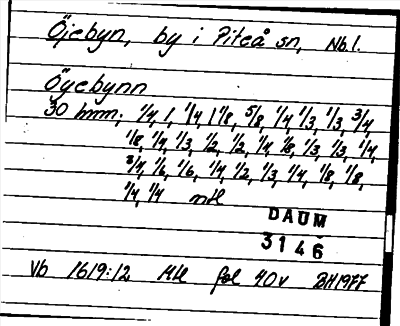 Öjebyn, by i Piteå sn, Nb.l.
Öyebynn
30 hmm; 1/4, 1, 1/4, 1 1/8, 5/8, 1/4, 1/3, 1/3, 3/4,
1/8, 1/4, 1/3, 1/2, 1/2, 1/4, 1/8, 1/3, 1/3, 1/4,
3/4, 1/6, 1/6, 1/4, 1/2, 1/3, 1/4, 1/8, 1/8,
1/4, 1/4 ntl
DAUM
3146
Vb 1619:12 Mtl fol 40v BH1977